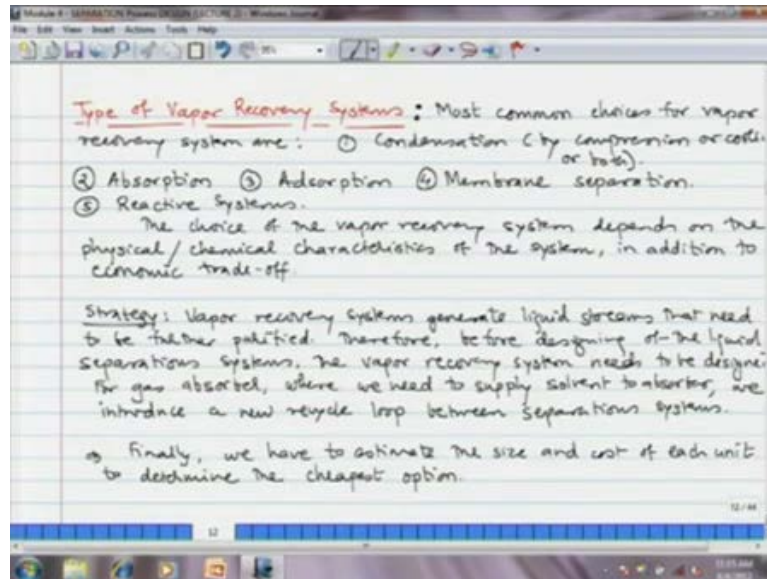 Module 4 - SEPARATION Process DESIGN (LECTURE 2) - Windows Journal
File Edit View Insert Actions Tools Help
Type of Vapor Recovery Systems : Most common choices for vapor
recovery system are : ① Condensation (by compression or cooli
or both).
② Absorption ③ Adsorption ④ Membrane separation.
⑤ Reactive Systems.
The choice of the vapor recovery system depends on the
physical/chemical characteristics of the system, in addition to
economic trade-off.
Strategy: Vapor recovery systems generate liquid streams that need
to be further purified. Therefore, before designing of the liquid
separations systems, the vapor recovery system needs to be designe
For gas absorber, where we need to supply solvent to absorber, we
introduce a new recycle loop between separations systems.
⇒ Finally, we have to estimate the size and cost of each unit
to determine the cheapest option.
12/44
12